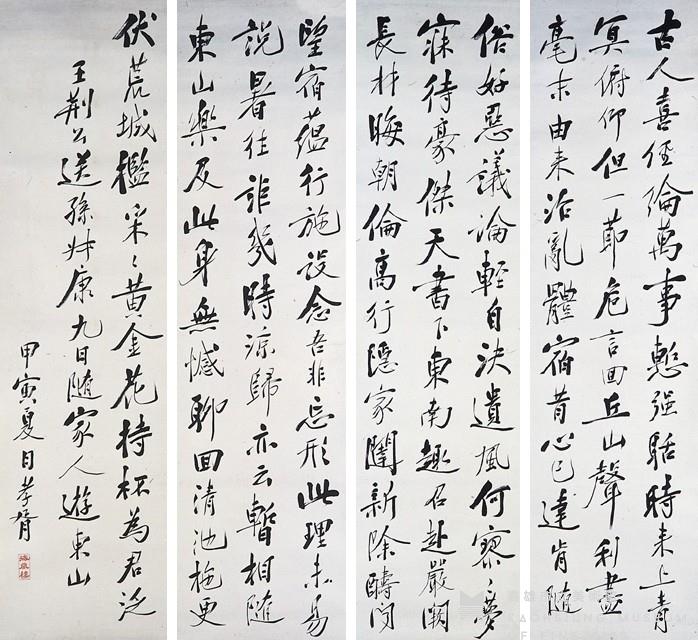 古人喜經綸萬事慙强聒時来上青
冥俯仰但一節危言回丘山聲利盡
毫末由来治亂體宿昔心已達肯隨
俗好惡議論輕自決遺風何寥〻夢
寐待豪傑天書下東南趣召赴嚴闕
長材晦朝倫高行隱家閥新除疇聞
望宿蘊行施設念吾非忘形此理未易
說暑往詎幾時涼歸亦云暫相隨
東山樂及此身無憾聊回清池柂更
伏荒城檻采〻黃金花持杯為君泛
王荆公送孫叔康九日隨家人遊東山
甲寅夏日孝胥
海藏樓